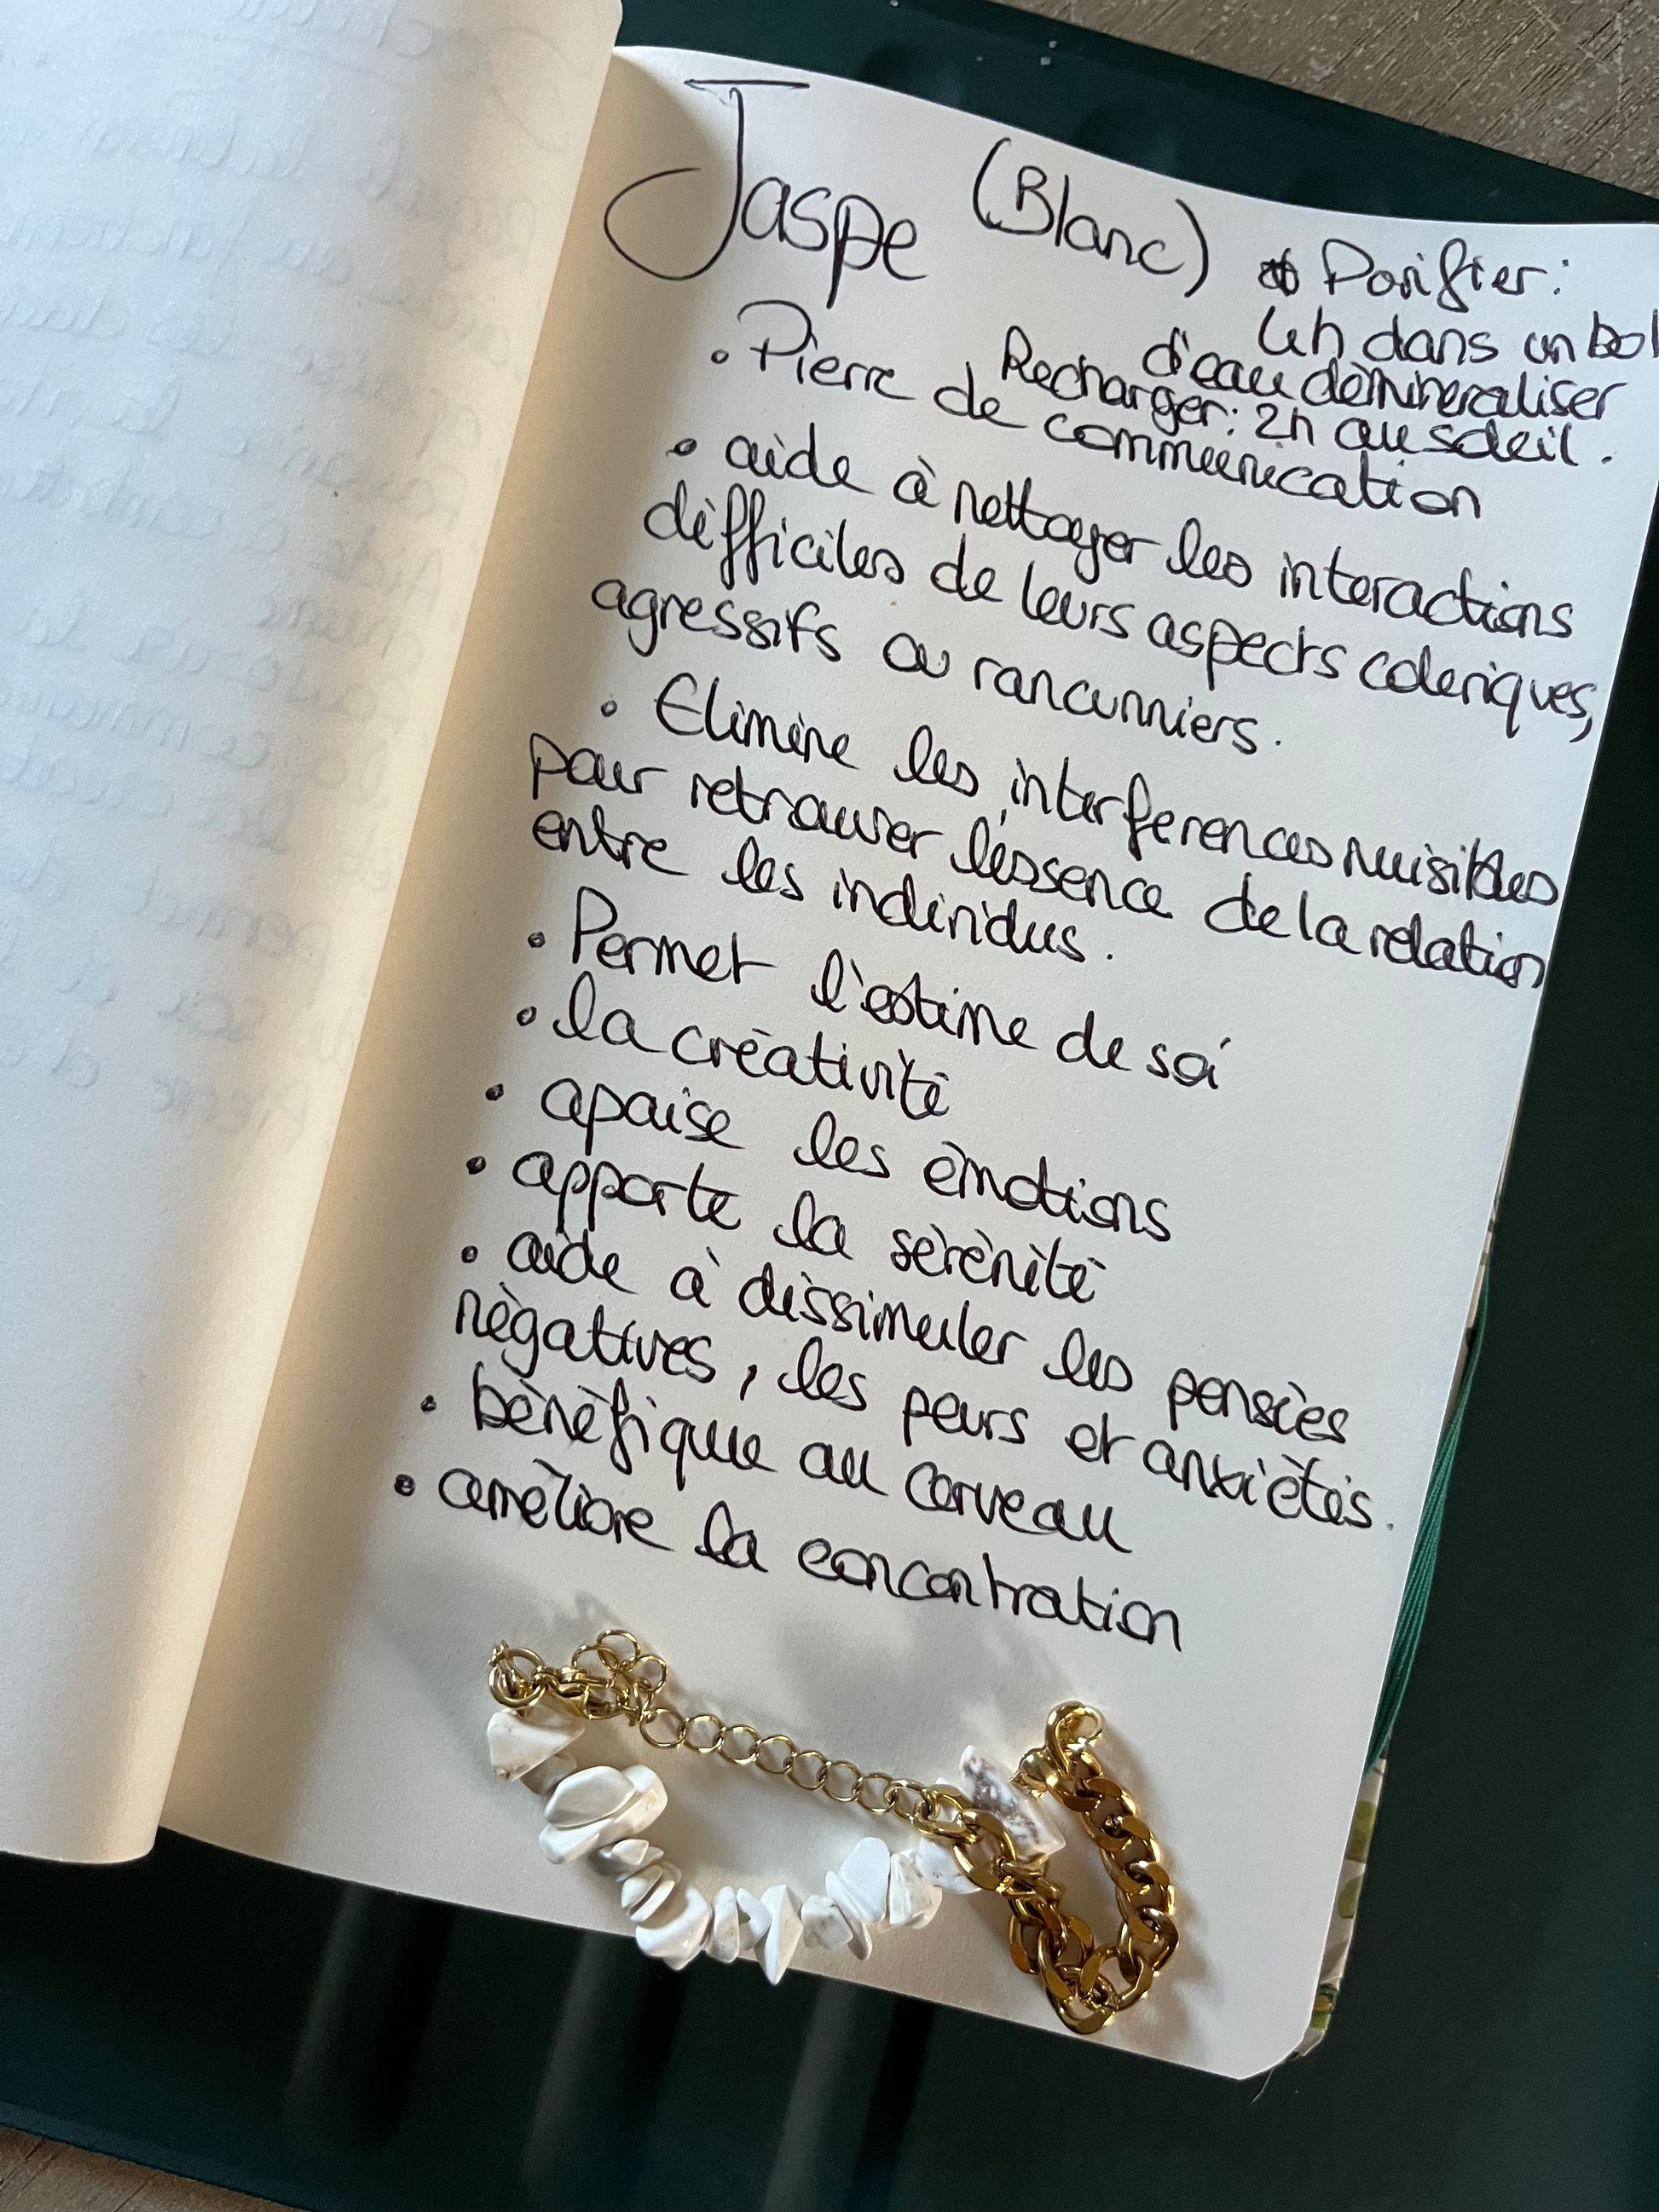 Jaspe (Blanc)
Purifier:
4h dans un bol
d'eau démineraliser
Recharger: 2h au soleil.
• Pierre de communication
• aide à nettoyer les interactions
difficiles de leurs aspects coleriques,
agressifs ou rancunniers.
• Elimine les interferences nuisibles
pour retrouver l'essence de la relation
entre les individus.
• Permet l'estime de soi
• la créativité
• apaise les émotions
• apporte la sérénité
• aide à dissimuler les pensées
négatives, les peurs et anxiétés.
• bénéfique au cerveau
• améliore la concentration